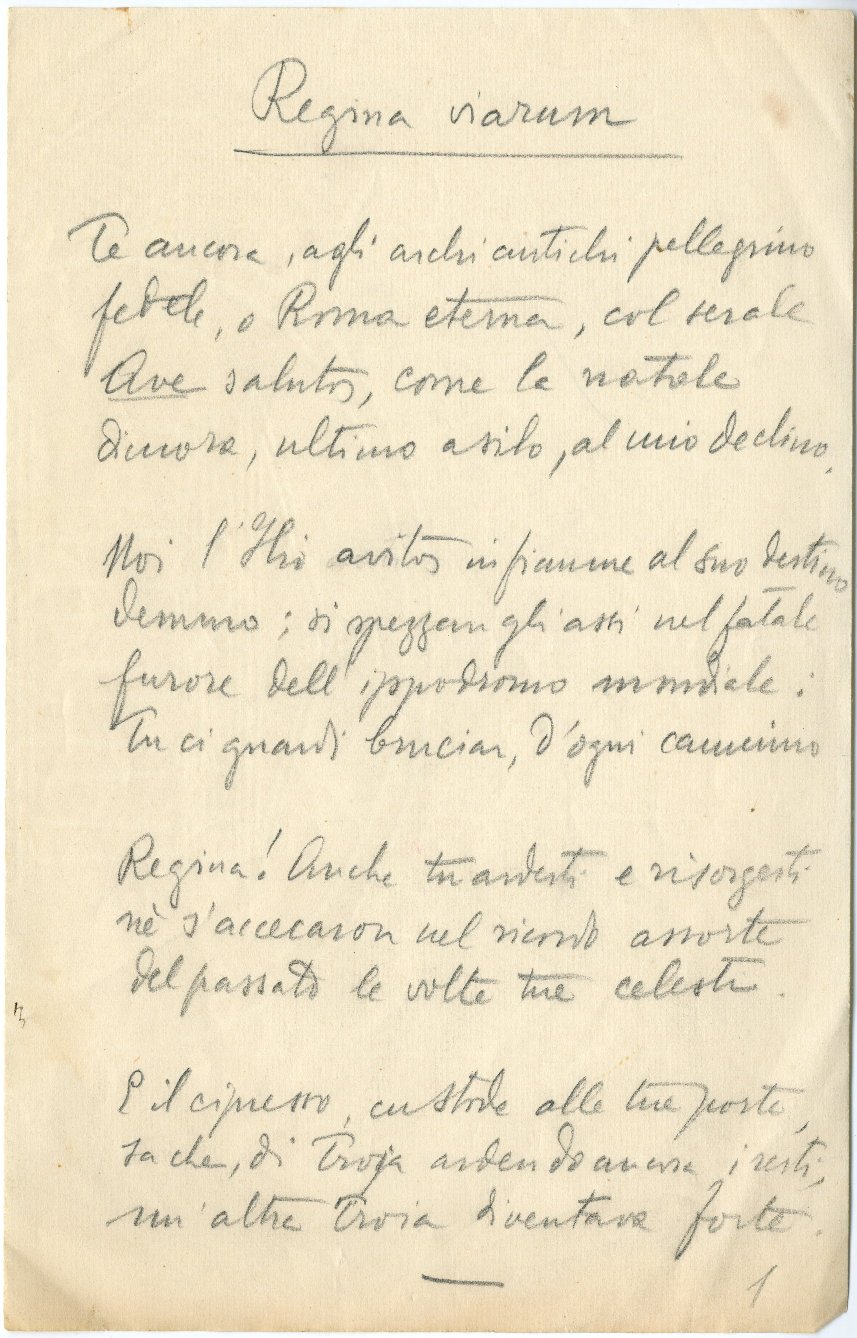 Regina viarum
Te ancora, agli archi antichi pellegrino
fedele, o Roma eterna, col serale
Ave saluto, come la natale
dimora, ultimo asilo, al mio declino.
Noi l'Ilio avito in fiamme al suo destino
demmo; si spezzan gli assi nel fatale
furore dell'ippodromo mondiale:
Tu ci guardi bruciar, d'ogni cammino
Regina! Anche tu ardesti e risorgesti
nè s'accecaron nel ricordo assorte
del passato le volte tue celesti.
E il cipresso, custode alle tue porte,
sa che, di Troja ardendo ancora i resti,
un'altra Troia diventava forte.
1